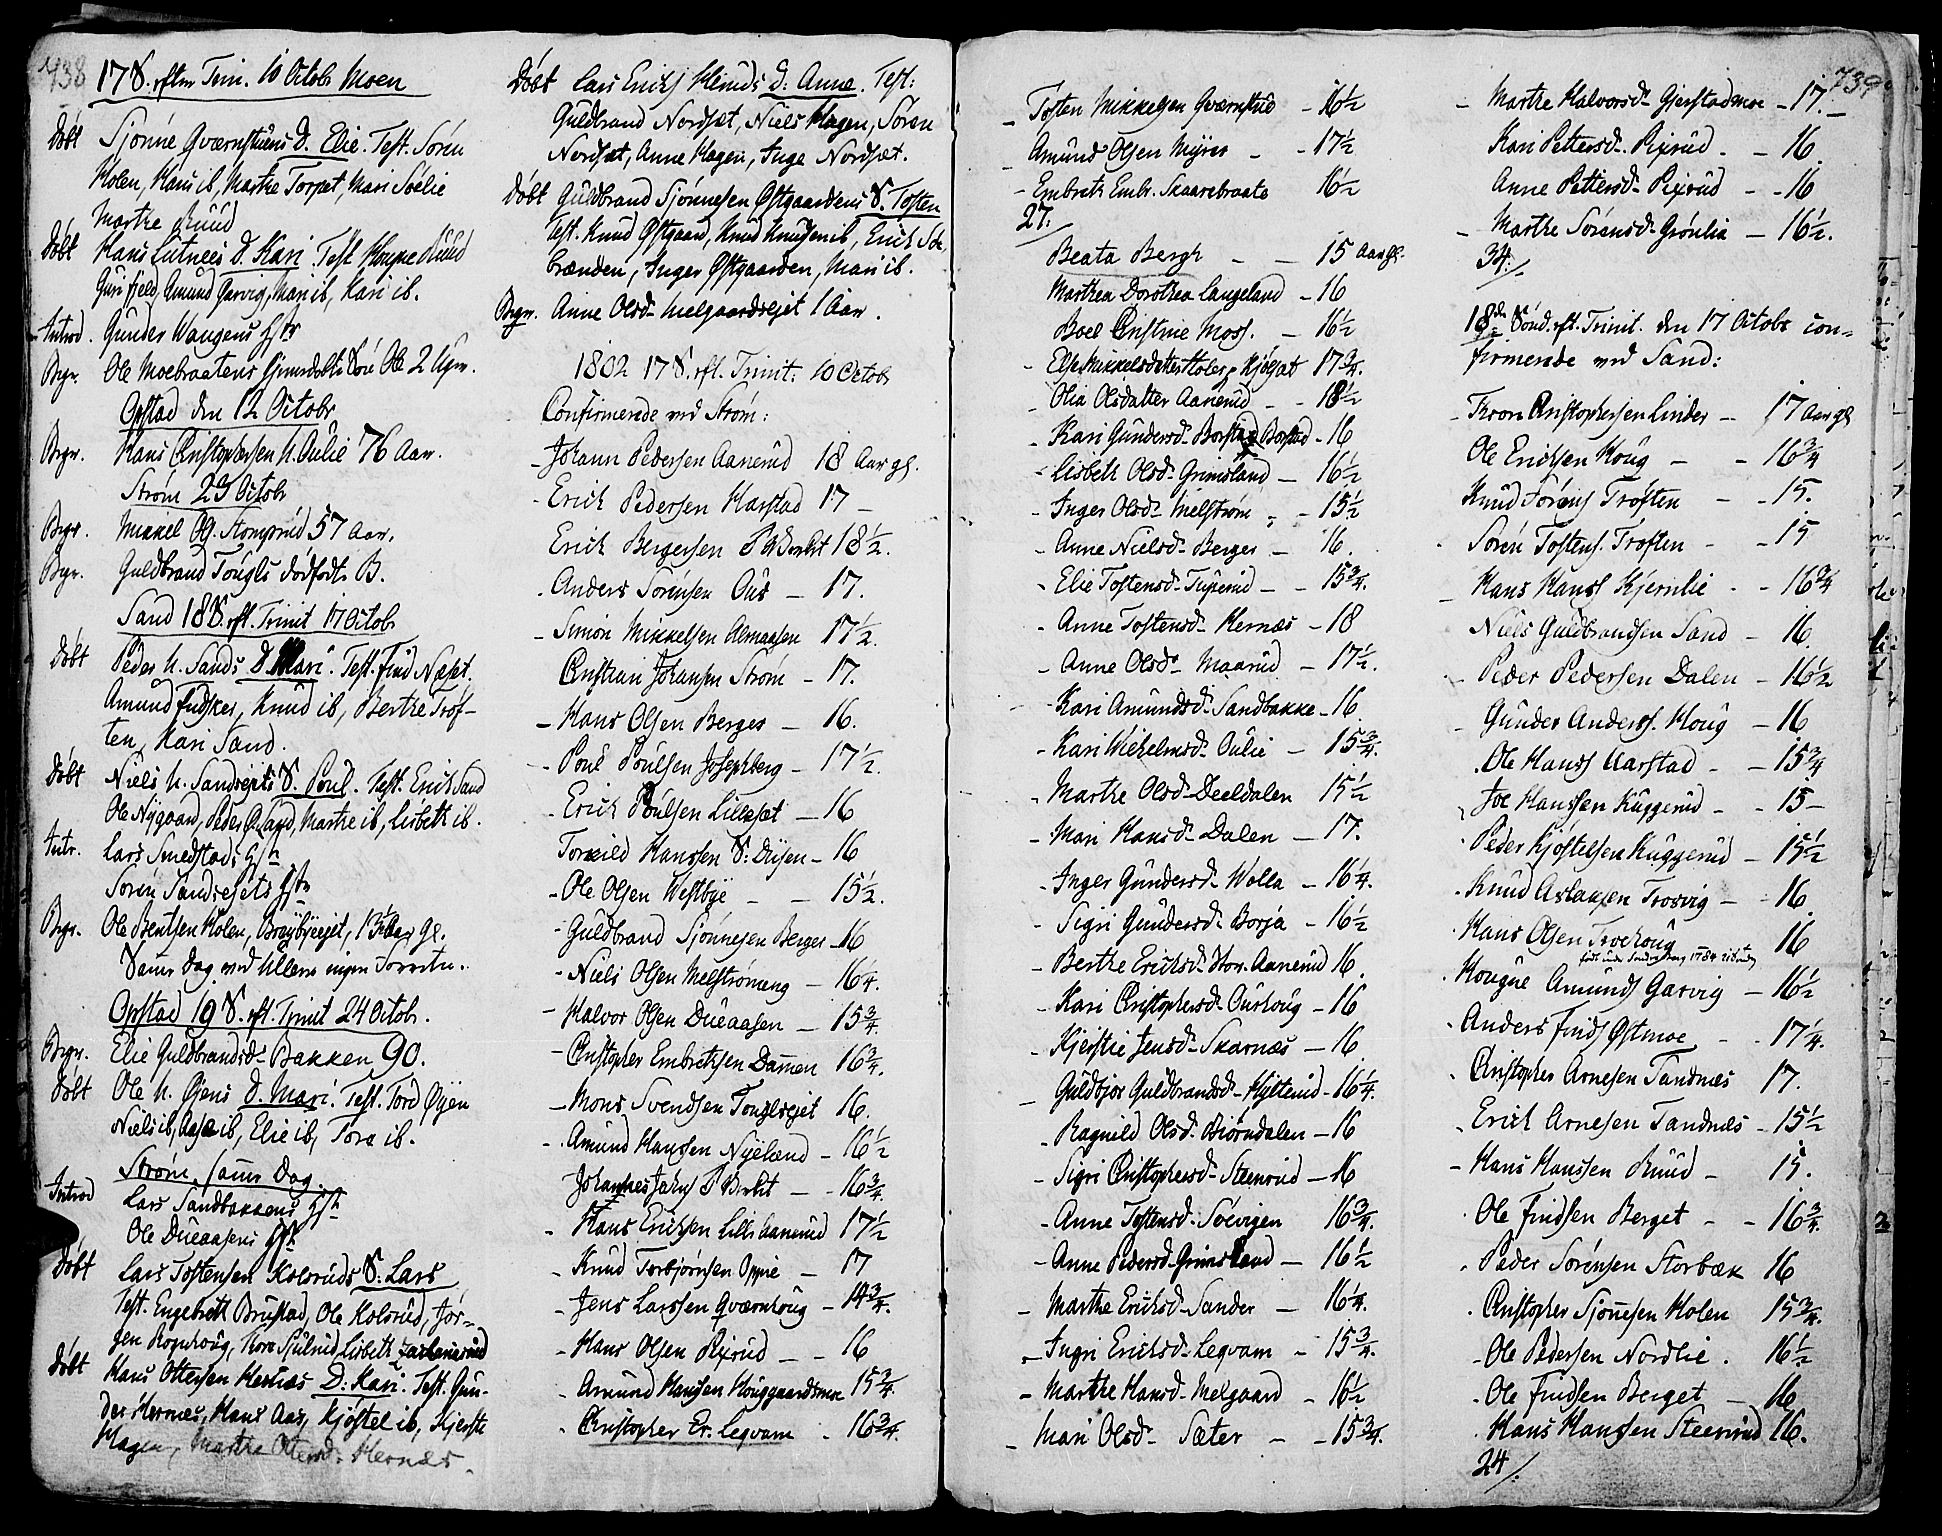 738
17 S. efter Trin. 10 Octobr Moen
Døbt Sjønne Qværnstuens D. Elie. Test. Søren
Holen, Hans ib, Marthe Torpet, Mari Soelie
Marthe Ruud
Døbt Hans Lutnees D. Kari Test. Ruud
Guri fjeld, Amund Garvig, Mari ib, Kari ib.
Introd. Gunder Wangens Hstr
Begr. Ole Moebraatens Søn Ole 2 Uger.
Opstad den 12 Octobr
Begr. Hans Christophersen N. Oulie 76 Aar.
Strøm 23 Octobr
Begr. Mikkel Og. Stomprud 57 Aar.
Begr. Guldbrand Tougls dødfødt B.
Sand 18 S. eft. Trinit 17 Octobr
Døbt Peder N. Sands D. Mari. Test. Find Næset.
Amund Findsker, Knud ib, Berthe Trøf-
ten, Kari Sand.
Døbt Niels N. Sandsejets S. Poul. Test. Erich Sand
Ole Nygaard, Peder Ø. Sand, Marthe ib, Lisbeth ib.
Intr. Lars Smedstads Hstr
Søren Sandsejets Hstr
Begr. Ole Bentsen Holen, Brøybyeejet, 13 Aar gl.
Samme Dag ved Ullern ingen Forretn.
Opstad 19 S. eft. Trinit 24 Octobr.
Begr. Elie Guldbrandsd. Bakken 90.
Døbt Ole N. Øiens D. Mari. Test. Tord Øyen
Niels ib, Aase ib, Elie ib, Tora ib.
Strøm samme Dag
Introd Lars Sandbakkens Hstr
Ole Dueaasens Hstr
Døbt Lars Tostensen Kolsruds S. Lars
Test. Engebrett Brustad, Ole Kolsrud, Jør-
gen Rogshoug, Kore Sjulsrud, Lisbeth
Døbt Hans Ottersen Hernæs D: Kari. Test. Gun-
der Hernæs, Hans Aas, Kjøstel ib, Kjersti
Hagen, Marthe Ottersd. Hernæs.
Døbt Lars Erichs Hinds D. Anne. Test:
Guldbrand Nordsæt, Niels Hagen, Søren
Nordsæt, Anne Hagen, Inge Nordsæt.
Døbt Guldbrand Sjønnesen Østgaardens S. Tosten
Test. Knud Østgaard, Knud Knudsen ib, Erich Sch
brænden, Inger Østgaarden, Mari ib.
Begr. Anne Olsd. Melgaardsejet 1 Aar.
1802 17 S. eft. Trinit: 10 Octobr
Confirmerede ved Strøm:
Johann Pedersen Aanerud 18 Aar gl.
- Erich Pedersen Harstad 17 -
Erich Bergersen 18 1/2.
- Anders Sørensen Ous - 17.
- Simon Mikkelsen Almaasen 17 1/2.
Christian Johansen Strøm - 17.
- Hans Olsen Berger - 16.
- Poul Poulsen Josephberg - 17 1/2.
- Erich Poulsen Lillesæt - 16
Torkild Hanssen S: Disen - 16
- Ole Olsen Westbye - - 15 1/2.
- Guldbrand Sjønnesen Berger - 16
- Niels Olsen Melstrømeng - 16 1/4.
- Halvor Olsen Dueaasen - 15 3/4.
- Christopher Embretsen Dammen 16 3/4.
- Mons Svendsen Touglsejet 16.
- Amund Hanssen Nyelænd - 16 1/2
Johannes Jahns - 16 3/4.
- Hans Erichsen Lille Aanerud 17 1/2
- Knud Torbjørnsen Oppie - 17
- Jens Larssen Qværnhoug - 14 3/4.
- Hans Olsen Rixrud - - 16
- Amund Hanssen Houggaardsmoe 15 3/4.
- Christopher Er. Leqvam - 16 3/4.
739
- Tosten Mikkelsen Qværnstue - 16 1/2
- Amund Olsen Myrer - - 17 1/2
- Embreth Embr. Skaarebraate 16 1/2
27.
Beata Bergh - - 15 Aar gl.
Marthea Dorothea Langeland - 16
Boel Christine Moss. - 16 1/2
- Else Mikkelsdatter Holer, Kjølsæt 17 3/4.
- Olia Olsdatter Aanerud - - 18 1/2
- Kari Gundersd. Borstad - 16
- Lisbeth Olsd. Grimsland - 16 1/2
- Inger Olsd. Melstrøm - - 15 1/2
- Anne Nielsd. Berger - 16.
- Elie Tostensd. Tuserud - - 15 3/4.
- Anne Tostensd. Hernæs - 18
- Anne Olsd. Maarud - 17 1/2.
- Kari Amundsd. Sandbakke - 16
- Kari Wilhelmsd. Oulie - 15 3/4.
- Marthe Olsd. Deeldalen 15 1/2
- Mari Hansd. Dalen - 17.
- Inger Gundersd. Wolla - 16 1/4.
- Sigri Gundersd. Borja - 16 1/2
- Berthe Erichsd. Stor. Aanerud 16
- Kari Christophersd. Ourhoug - 16
- Kjerstie Jensd. Skarnæs - 16.
- Guldbjor Guldbrandsd. Hytterud - 16 1/4.
- Ragnild Olsd. Biørndalen - 16
- Sigri Christophersd. Steenrud - 16
- Anne Tostensd. Soevigen 16 3/4.
- Anne Pedersd. Grimsland - 16 1/2
- Marthe Erichsd. Sander - 16 1/4.
- Ingri Erichsd. Leqvam - 15 3/4.
- Marthe Hansd. Melgaard - 16 1/2
- Mari Olsd. Sæter - - 15 3/4.
- Marthe Halvorsd. Gjerstadmoe - 17. -
Kari Pettersd. Rixrud - - 16.
Anne Pettersd. Rixrud - - 16
- Marthe Sørensd. Grønlia - 16 1/2.
34.
18de Sønd. eft. Trinit. den 17 Octobr con-
firmerede ved Sand:
- Tron Christophersen Linder - 17 Aar gl
Ole Erichsen Houg - - 16 3/4
Knud Sørens Trøften - - 15.
Søren Tostens. Trøften - - 15
- Hans Hanss Kjernlie - - 16 3/4
Niels Guldbrandsen Sand - 16
- Peder Pedersen Dalen - 16 1/2
- Gunder Anderss. Houg - 16
- Ole Hanss Aarstad - - 15 3/4
- Joe Hanssen Kuggerud - - 15 -
- Peder Kjøstelsen Kuggerud - 15 1/2
- Knud Aslaksen Trosvig - 16
- Hans Olsen Troehoug 16
- Hougne Amunds Garvig - 16 1/2
- Anders Finds Østmoe - - 17 1/4.
- Christopher Arnesen Sandnæs 17.
- Erich Arnesen Sandnæs - 15 1/2
- Hans Hanssen Ruud - 15.
- Ole Findsen Berget - - 16 3/4.
- Peder Sørensen Storbæk 16
- Christopher Sjønnesen Holen 15 3/4.
- Ole Pedersen Nordlie. 16 1/2
- Ole Findsen Berget - 16
- Hans Hanssen Steenrud 16.
24